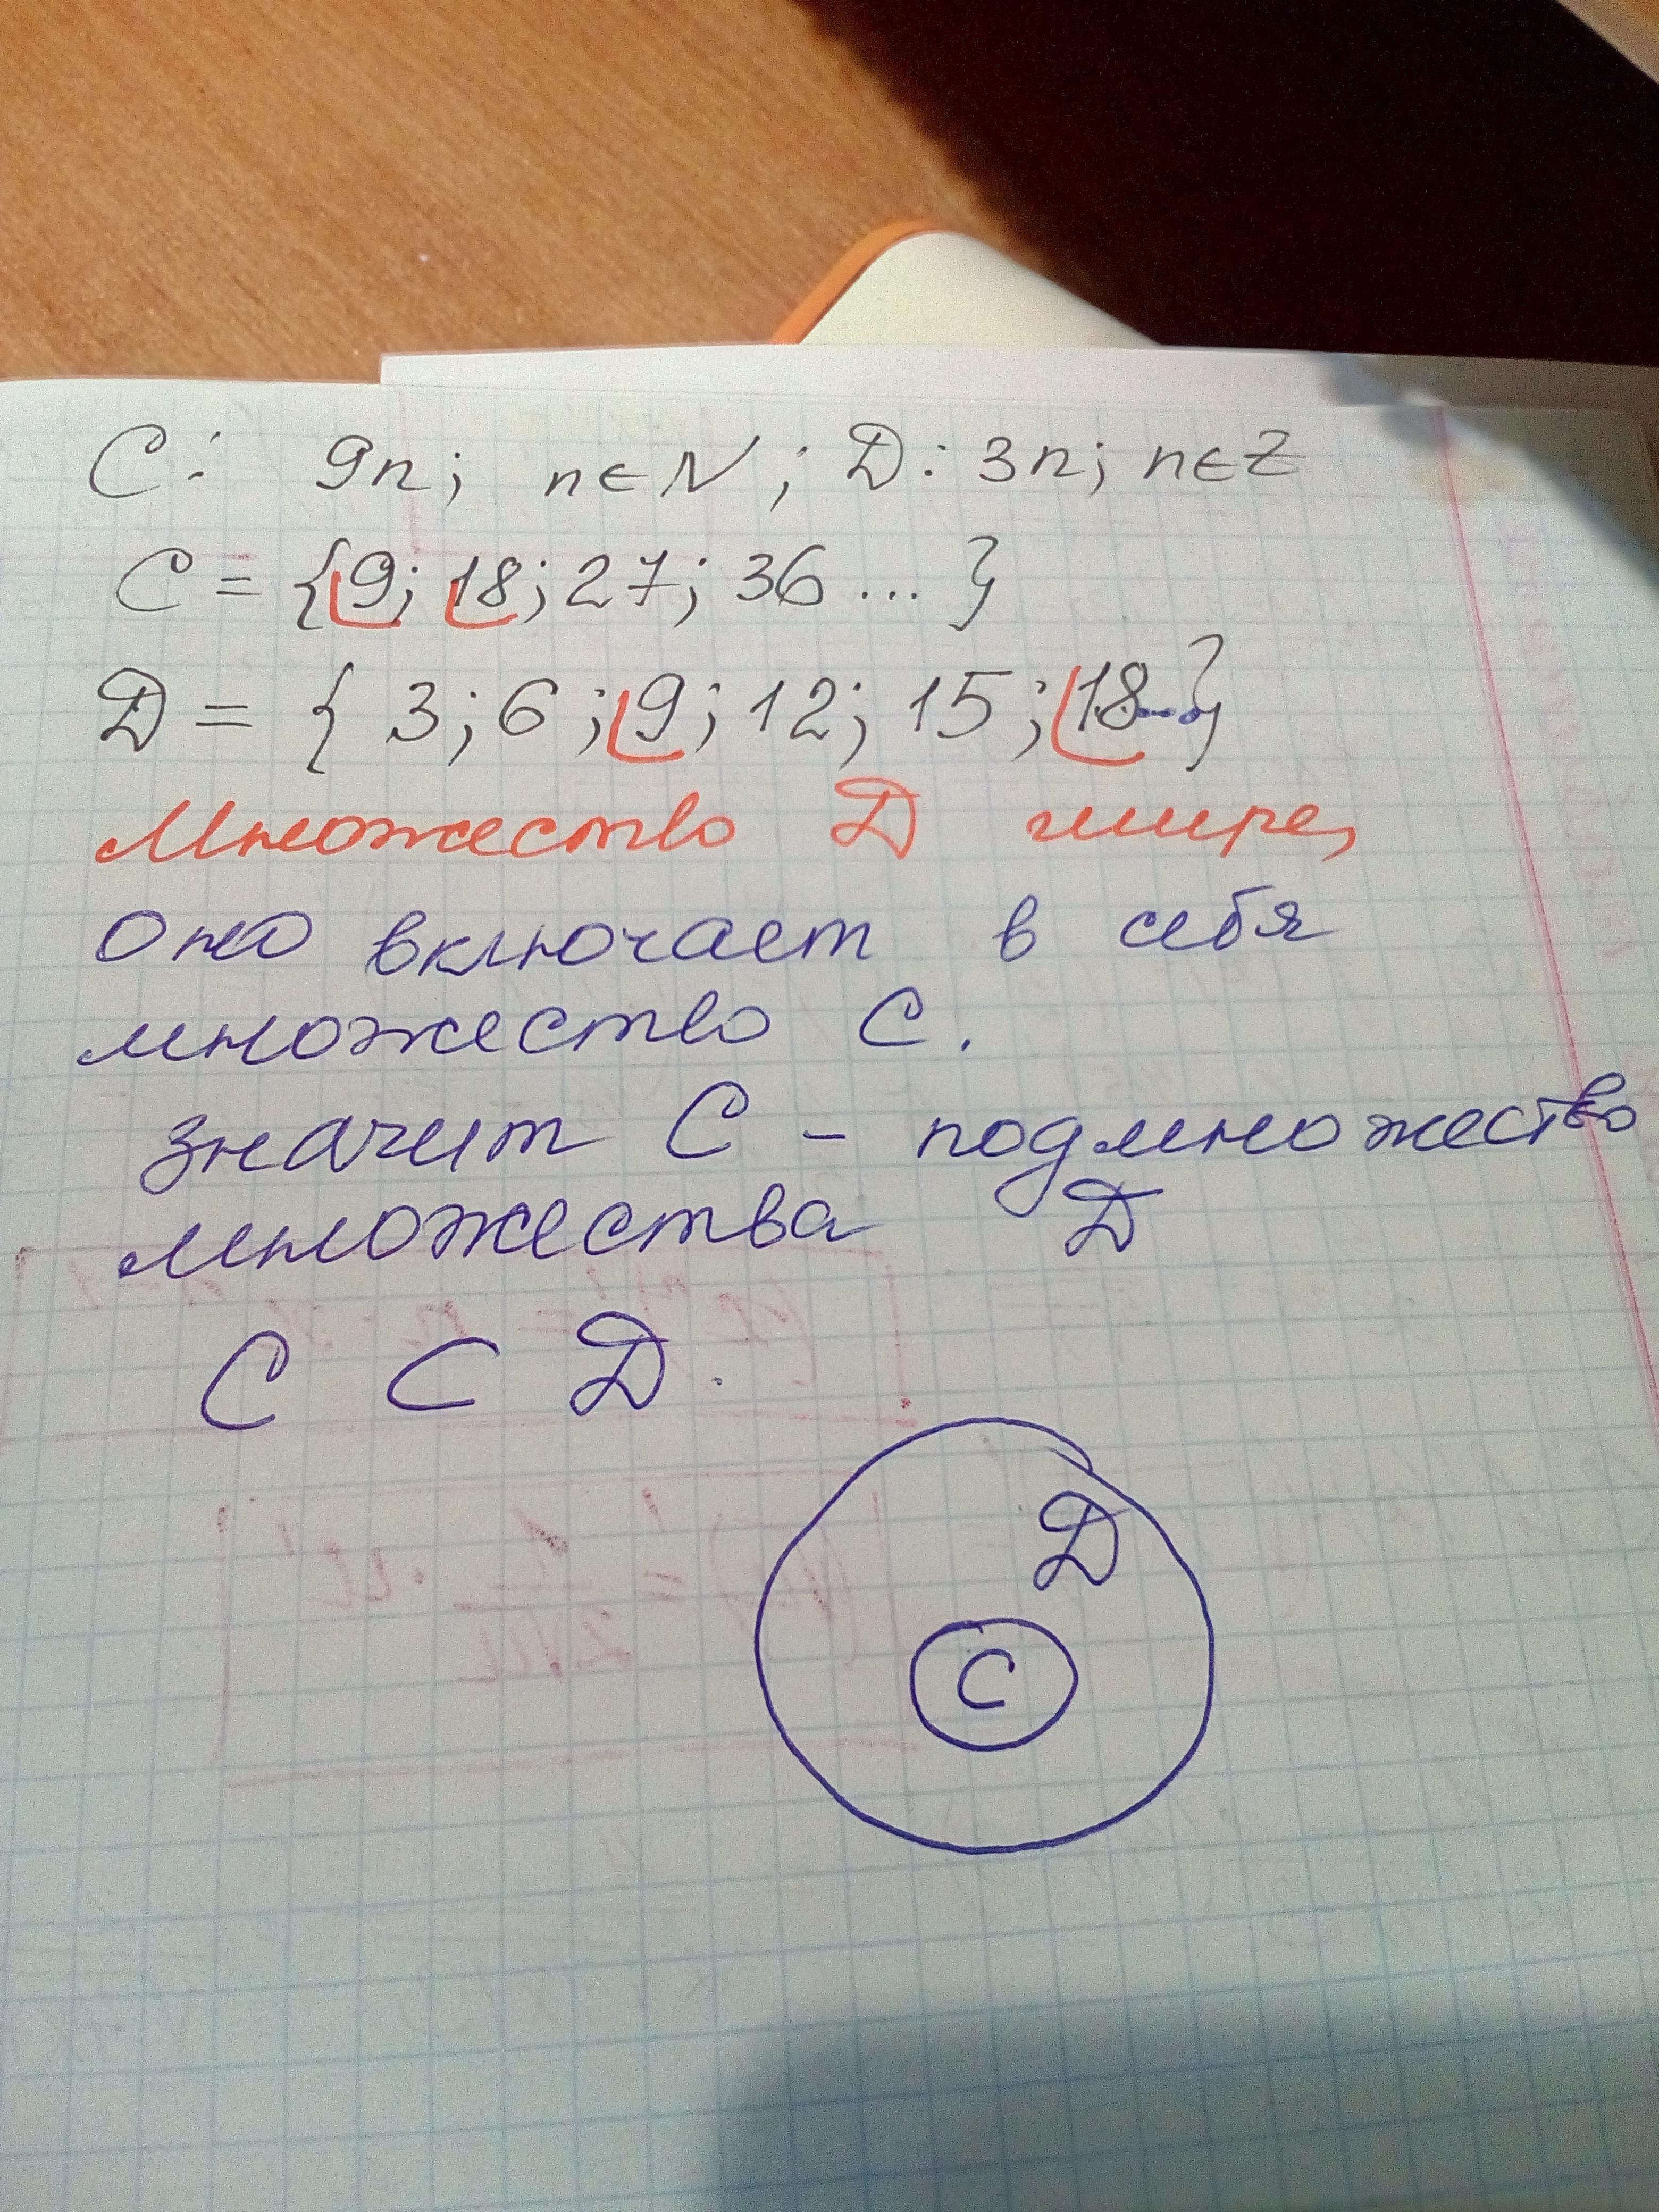 C: 9n; n∈N; D: 3n; n∈Z
C = {9; 18; 27; 36 ... }
D = { 3; 6; 9; 12; 15; 18...}
Множество D шире,
Оно включает в себя
множество C.
значит C - подмножество
множества D
C ⊂ D.
D
C